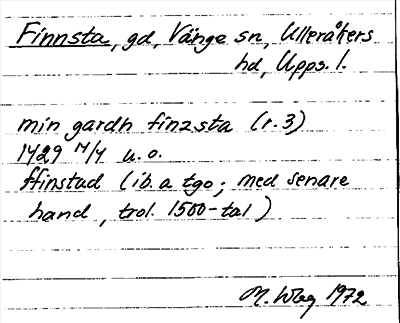 Finnsta, gd, Vänge sn, Ulleråkers
hd, Upps. l.
min gardh finzsta (r. 3)
1429 14/4 u. o.
ffinstad (ib. a tgo; med senare
hand, trol. 1500-tal)
M. Wbg 1972